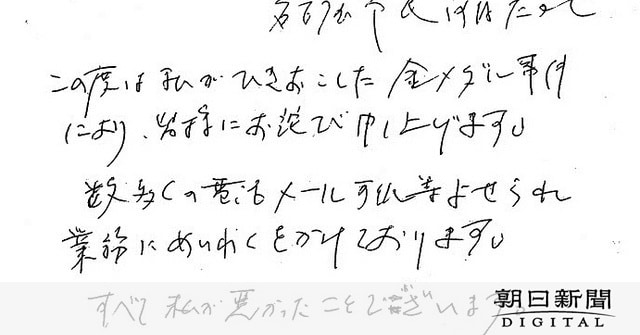 名古屋市民
この度は私がひきおこした金メダル事件
により、皆様にお詫び申し上げます。
数多くの電話メール手紙等よせられ
業務にめいわくをかけております。
すべて私が悪かったことでございます。
朝日新聞
DIGITAL